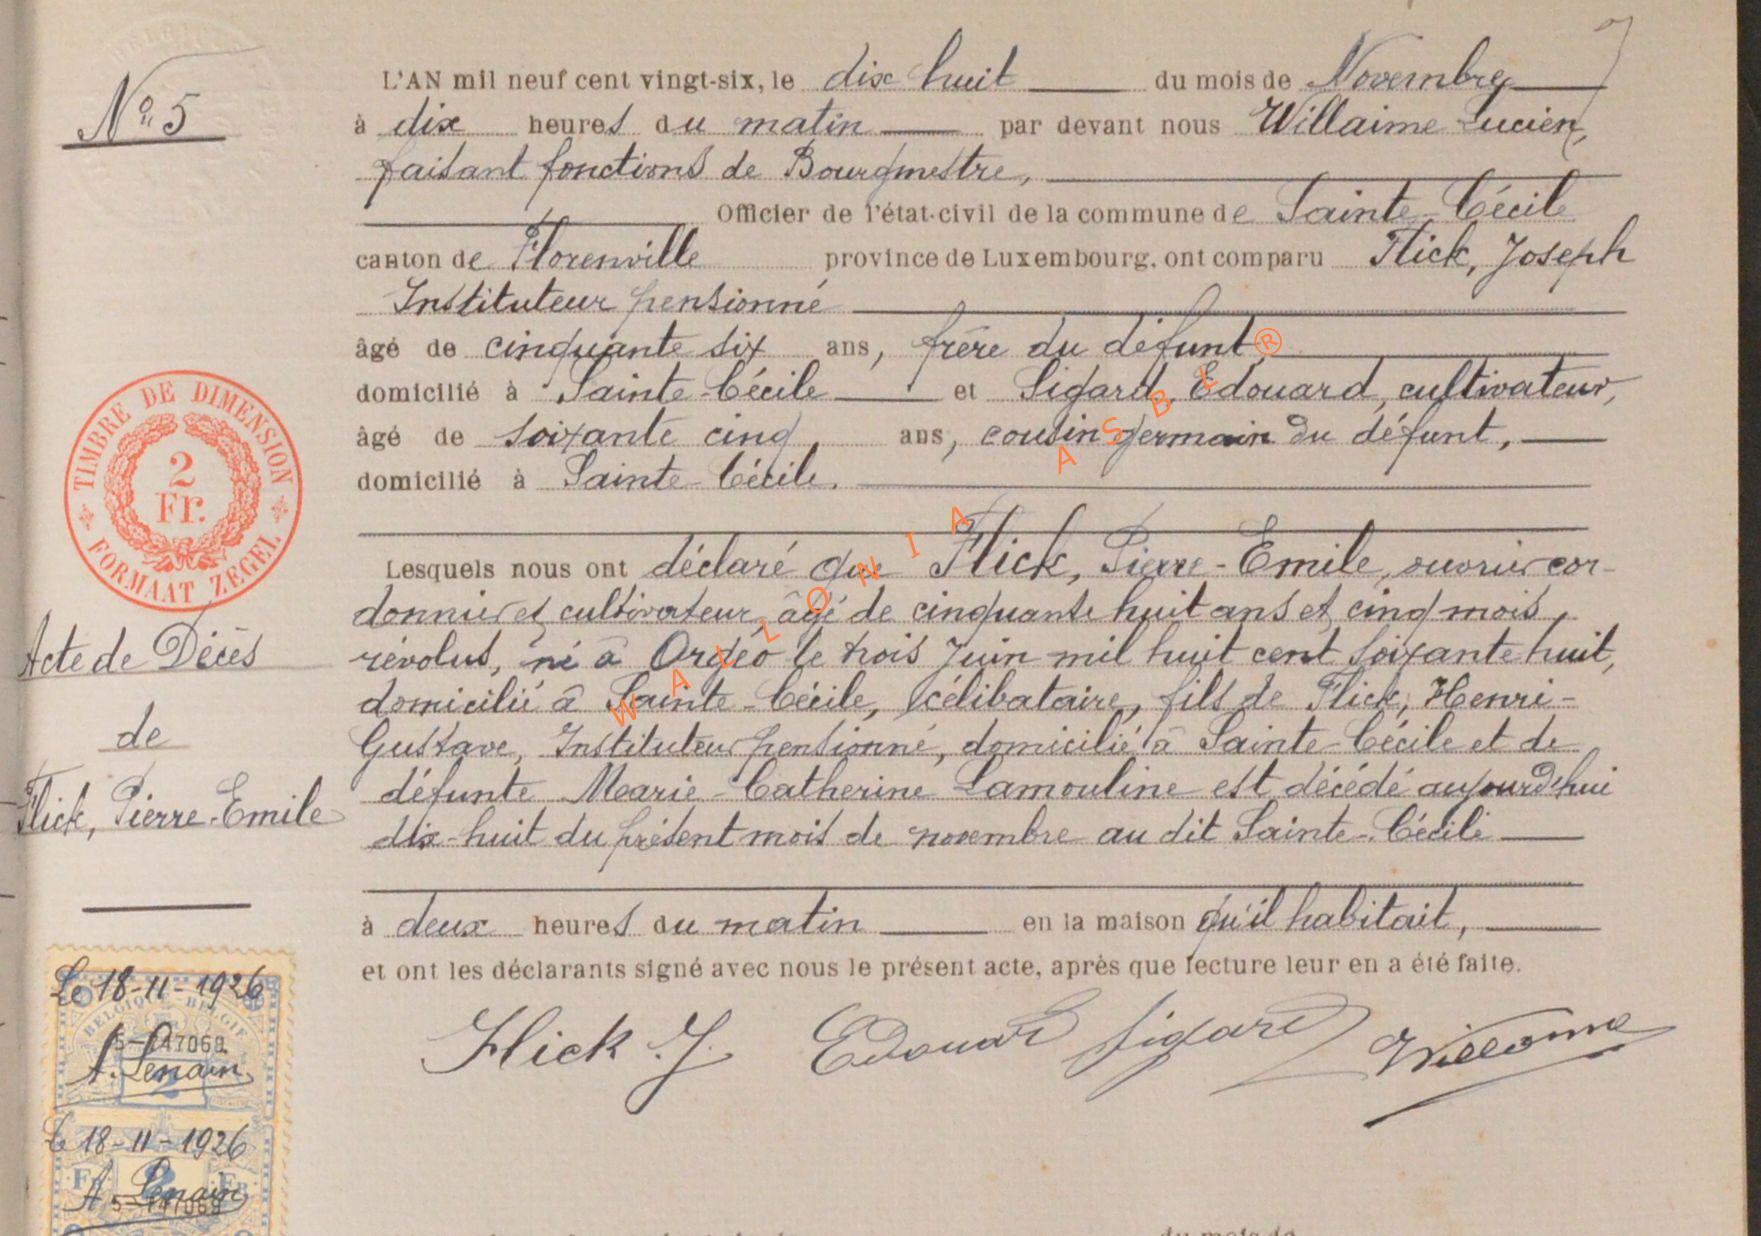 Nº 5
L'AN mil neuf cent vingt-six, le dix huit du mois de Novembre
à dix heures du matin par devant nous Willaime Lucien,
faisant fonctions de Bourgmestre,
Officier de l'état-civil de la commune de Sainte-Cécile
canton de Florenville province de Luxembourg, ont comparu Flick, Joseph
Instituteur pensionné
âgé de cinquante six ans, frère du défunt,
domicilié à Sainte-Cécile et Sigard, Edouard, cultivateur,
âgé de soixante cinq, ans, cousin germain du défunt,
domicilié à Sainte-Cécile.
Lesquels nous ont déclaré que Flick, Pierre-Emile, ouvrier cor-
donnier et cultivateur, âgé de cinquante huit ans et cinq mois
révolus, né à Orgéo le trois Juin mil huit cent soixante huit,
domicilié à Sainte-Cécile, célibataire, fils de Flick, Henri-
Gustave, Instituteur pensionné, domicilié à Sainte-Cécile et de
défunte Marie-Catherine Lamouline est décédé aujourd'hui
dix-huit du présent mois de novembre au dit Sainte-Cécile
à deux heures du matin en la maison qu'il habitait,
et ont les déclarants signé avec nous le présent acte, après que lecture leur en a été faite.
Flick J. Edouard Sigard Willaime
TIMBRE DE DIMENSION
2
Fr.
FORMAAT ZEGEL
Acte de Décès
de
Flick, Pierre-Emile
Le 18-11-1926
BELGIQUE - BELGIE
A. Lenain
Le 18-11-1926
A. Lenain
WALLONIA ASBL ®
du mois de